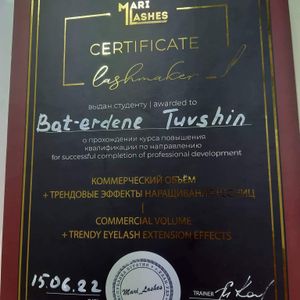 MARI
LASHES
CERTIFICATE
lashmaker
выдан студенту | awarded to
Bat-erdene Tuvshin
о прохождении курса повышения
квалификации по направлению
for successful completion of professional development
КОММЕРЧЕСКИЙ ОБЪЁМ
+ ТРЕНДОВЫЕ ЭФФЕКТЫ
COMMERCIAL VOLUME
+ TRENDY EYELASH EXTENSION EFFECTS
15.06.22
Mari_Lashes
TRAINER